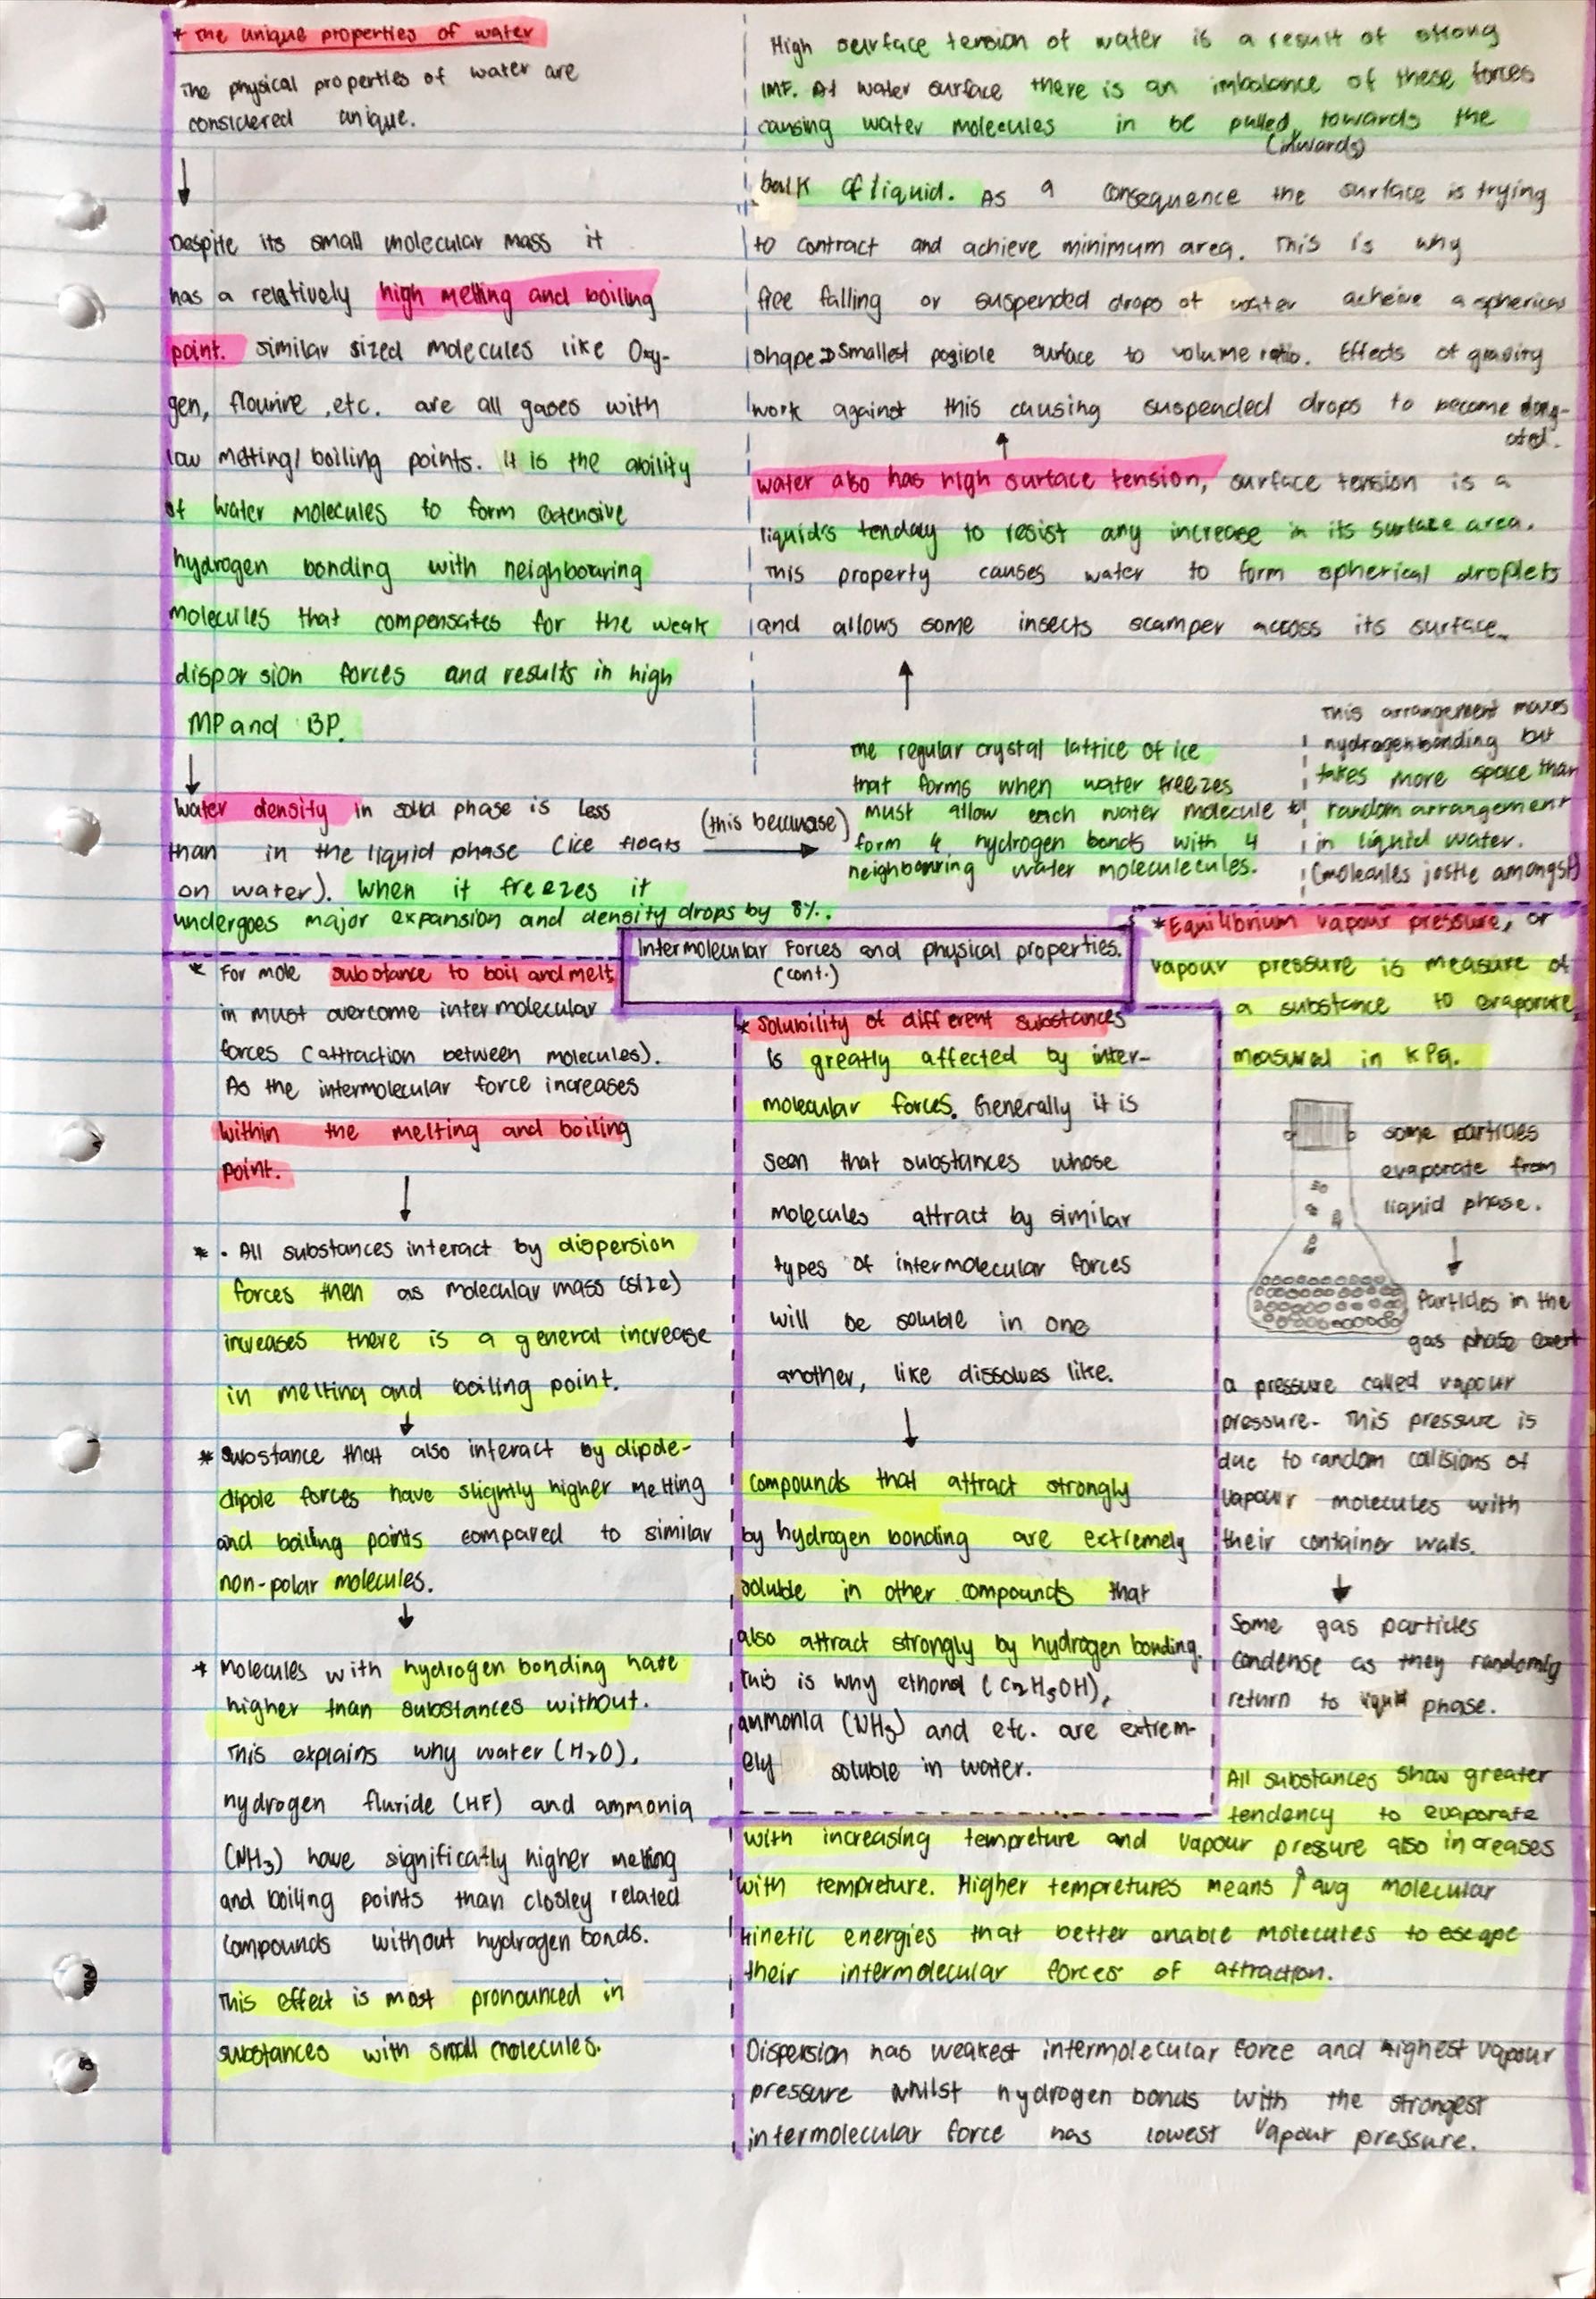 * The unique properties of water
The physical properties of water are
considered unique.
Despite its small molecular mass it
has a relatively high melting and boiling
point. similar sized molecules like Oxy-
gen, flourine, etc. are all gases with
low melting/boiling points. it is the ability
of water molecules to form extensive
hydrogen bonding with neighbouring
molecules that compensates for the weak
disporsion forces and results in high
MP and BP.
Water density in solid phase is less
than in the liquid phase (ice floats
on water). When it freezes it
undergoes major expansion and density drops by 8%.
(this becuase)
the regular crystal lattice of ice
that forms when water freezes
must allow each water molecule to
form 4 hydrogen bonds with 4
neighbouring water moleculecules.
This arrangement maxes
hydrogen bonding but
takes more space than
random arrangement
in liquid water.
(molecules jostle amongst)
water also has high surface tension, surface tension is a
liquid's tenday to resist any increase in its surface area.
This property causes water to form spherical droplets
and allows some insects scamper across its surface.
High surface tension of water is a result of strong
IMF. At water surface there is an imbalance of these forces
causing water molecules in be pulled towards the
(inwards)
bulk of liquid. As a consequence the surface is trying
to contract and achieve minimum area. This is why
free falling or suspended drops of water acheive a spherical
shape smallest posible surface to volume ratio. Effects of gravity
work against this causing suspended drops to become elong-
ated.
Intermolecular Forces and physical properties.
(cont.)
* For mole substance to boil and melt
in must overcome intermolecular
forces (attraction between molecules).
As the intermolecular force increases
within the melting and boiling
point.
* · All substances interact by dispersion
forces then as molecular mass (size)
increases there is a general increase
in melting and boiling point.
* Substance that also interact by dipole-
dipole forces have slightly higher melting
and boiling points compared to similar
non-polar molecules.
* Molecules with hydrogen bonding have
higher than substances without.
This explains why water (H2O),
hydrogen fluride (HF) and ammonia
(NH3) have significatly higher melting
and boiling points than closley related
compounds without hydrogen bonds.
This effect is most pronounced in
substances with small molecules.
* Solubility of different substances
is greatly affected by inter-
molecular forces. Generally it is
seen that substances whose
molecules attract by similar
types of intermolecular forces
will be soluble in one
another, like dissolves like.
compounds that attract strongly
by hydrogen bonding are extremely
soluble in other compounds that
also attract strongly by hydrogen bonding.
This is why ethonol (C2H5OH),
ammonia (NH3) and etc. are extrem-
ely soluble in water.
* Equilibrium vapour pressure, or
vapour pressure is measure of
a substance to evaporate,
measured in KPa.
some particles
evaporate from
liquid phase.
Particles in the
gas phase exert
a pressure called vapour
pressure. This pressure is
due to random collisions of
vapour molecules with
their container walls.
Some gas particles
condense as they randomly
return to liquid phase.
All substances show greater
tendency to evaporate
with increasing tempreture and vapour pressure also increases
with tempreture. Higher tempretures means ↑ avg molecular
kinetic energies that better enable molecules to escape
their intermolecular forces of attraction.
Dispersion has weakest intermolecular force and highest vapour
pressure whilst hydrogen bonds with the strongest
intermolecular force has lowest vapour pressure.